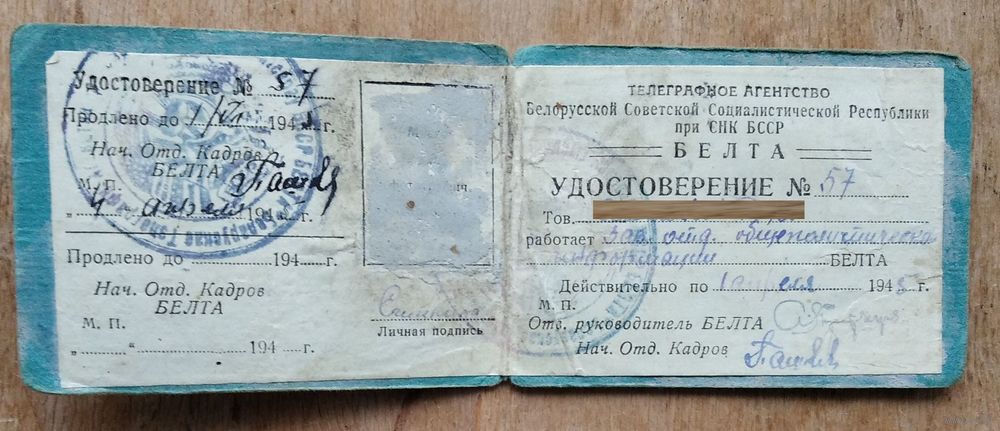 Удостоверение № 57
Продлено до 194 г.
Нач. Отд. Кадров
БЕЛТА
М. П.
„4" апреля 194 г.
Продлено до 194 г.
Нач. Отд. Кадров
БЕЛТА
М. П.
„ " 194 г.
Личная подпись
ТЕЛЕГРАФНОЕ АГЕНТСТВО
Белорусской Советской Социалистической Республики
при СНК БССР
БЕЛТА
УДОСТОВЕРЕНИЕ № 57
Тов.
работает зав. отд. общеполитическ
информации БЕЛТА
Действительно по 1 апреля 1948 г.
М. П.
Отв. руководитель БЕЛТА
Нач. Отд. Кадров